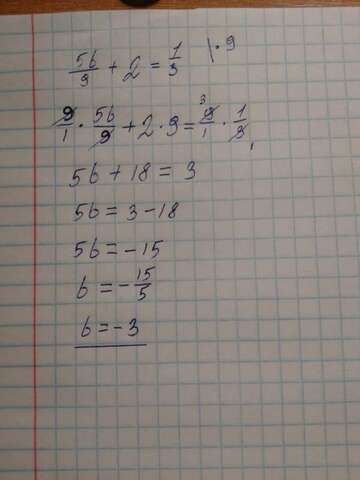 5b/9 + 2 = 1/3 | · 9
9/1 · 5b/9 + 2 · 9 = ³9/1 · 1/3 ₁
5b + 18 = 3
5b = 3 - 18
5b = -15
b = -15/5
b = -3